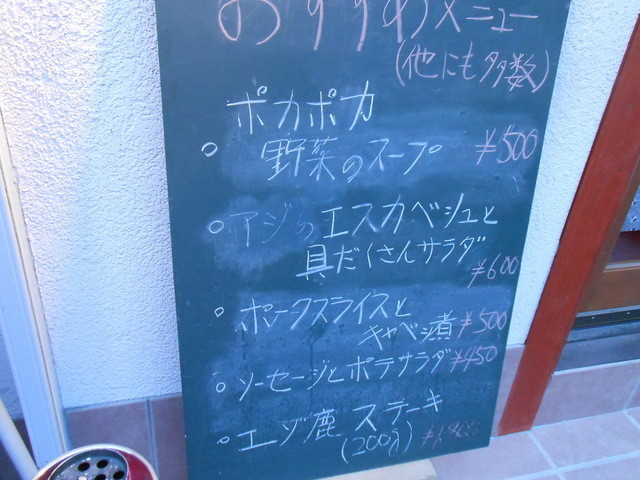 おすすめメニュー
(他にも多数)
ポカポカ
野菜のスープ ¥500
アジのエスカベシュと
具だくさんサラダ
¥600
ポークスライスと
キャベツ煮 ¥500
ソーセージとポテサラダ ¥450
エゾ鹿 ステーキ
(200g)